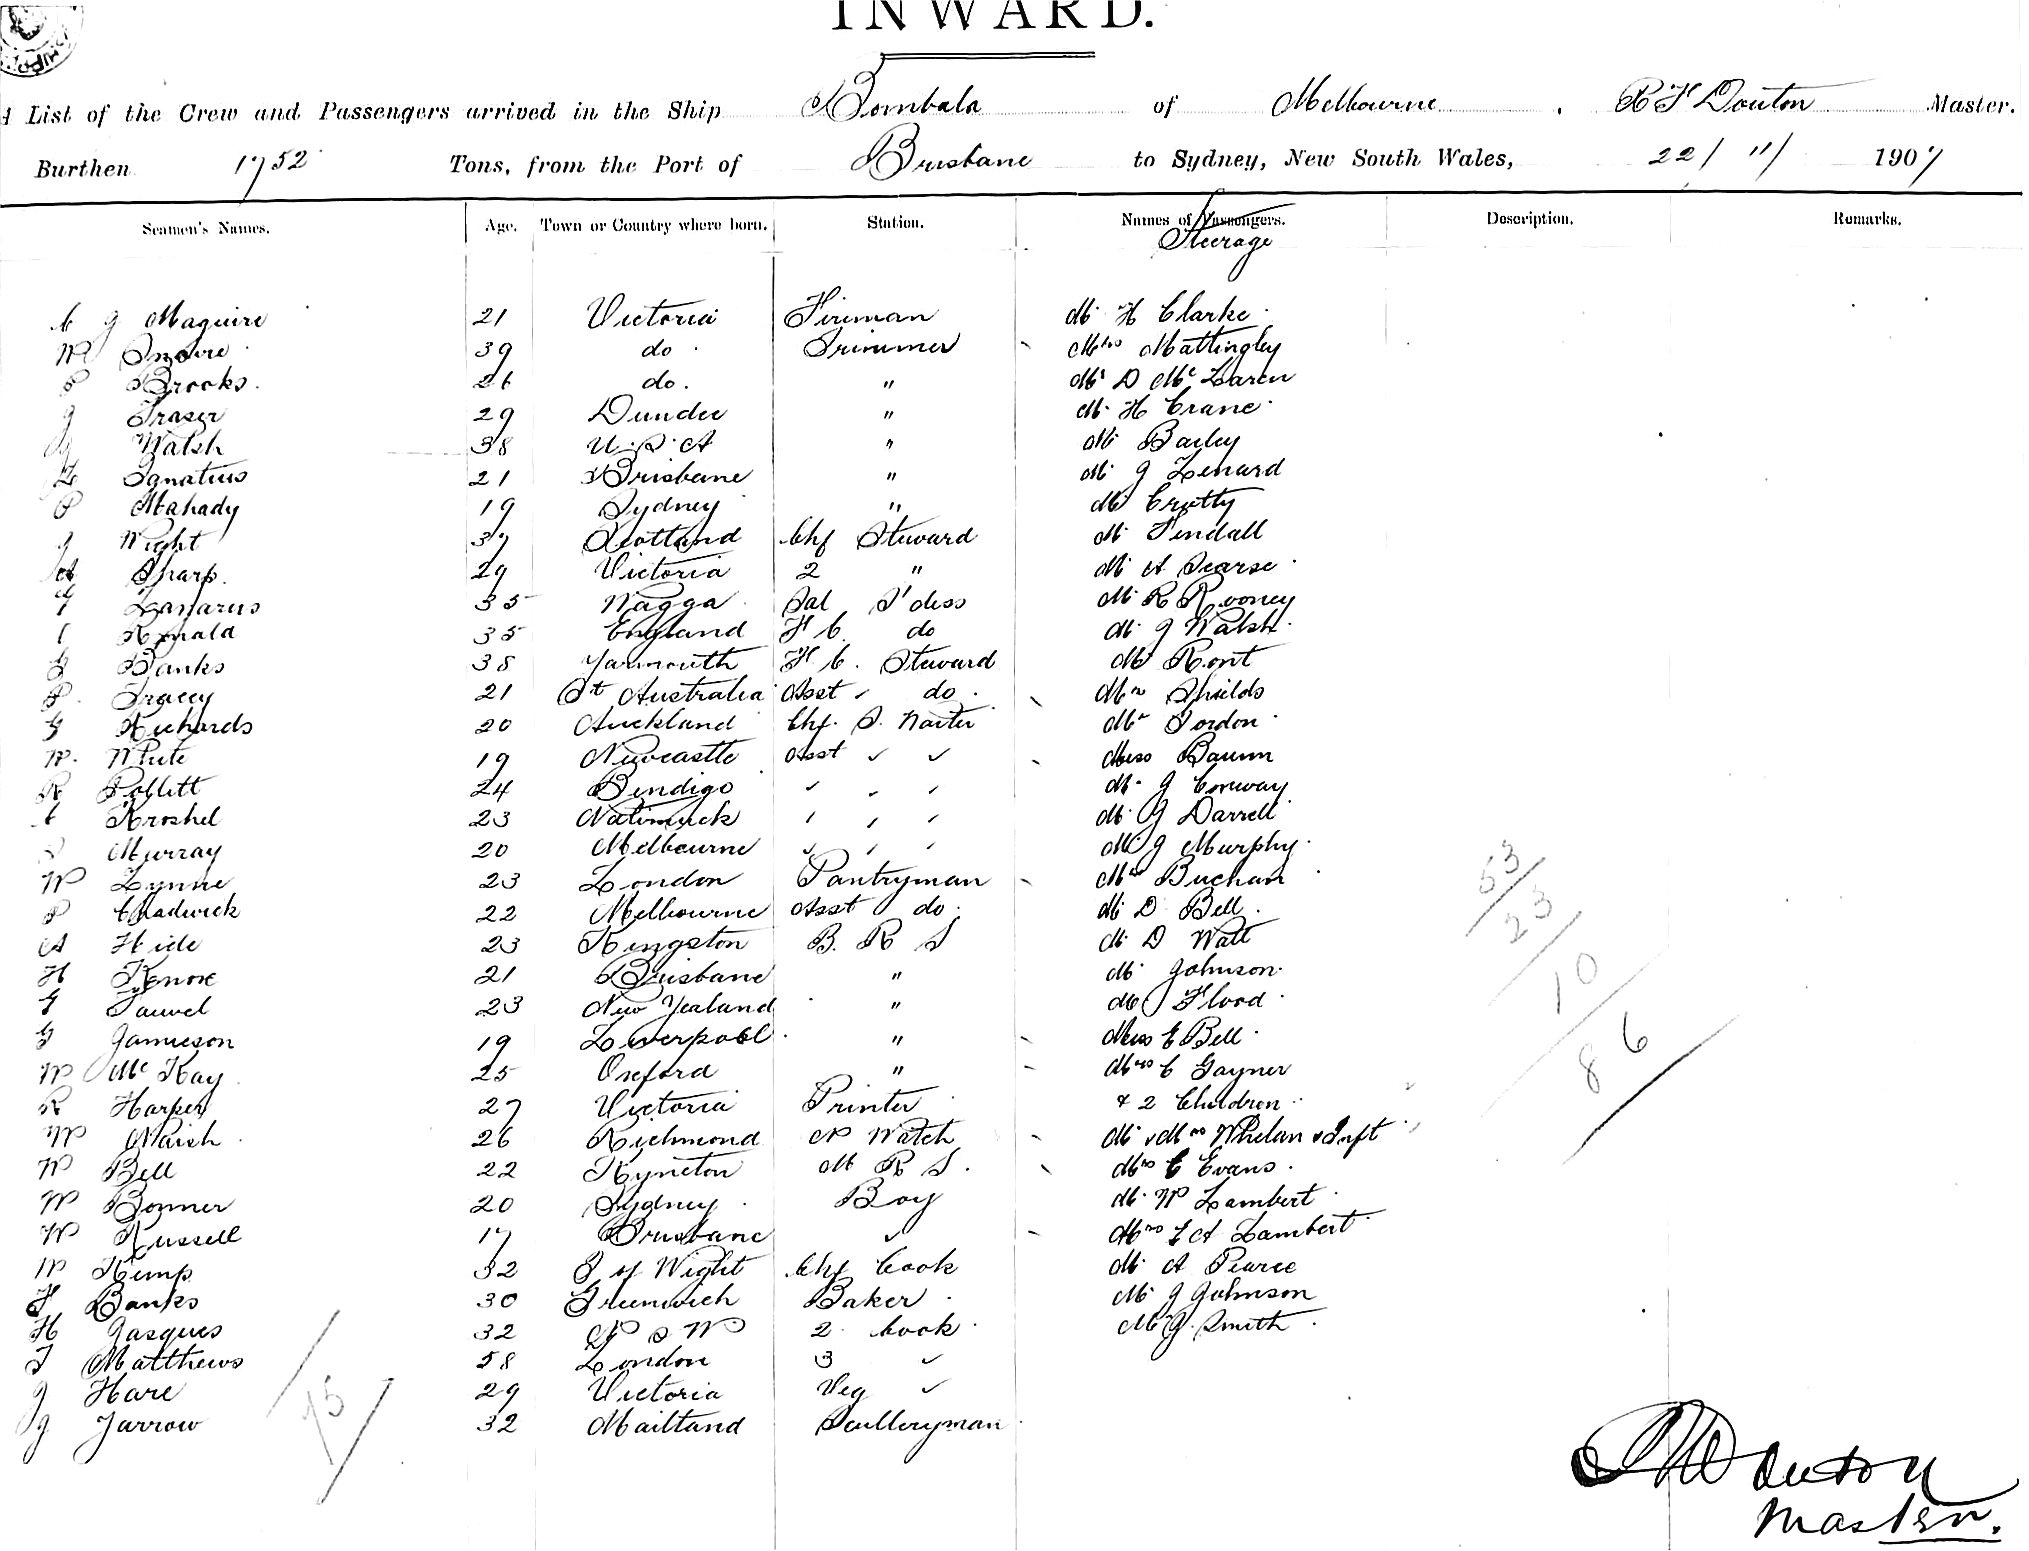 INWARD.
A List of the Crew and Passengers arrived in the Ship Bombala of Melbourne, R F Douton Master.
Burthen 1752 Tons, from the Port of Brisbane to Sydney, New South Wales, 22/ 11/ 1907
Seamen's Names. Age. Town or Country where born. Station. Names of Passengers. Description. Remarks.
Steerage
C J Maguire 21 Victoria Fireman Mr H Clarke
W 39 do Trimmer Mrs Mattingley
P Brooks. 26 do. " Mr D McLaren
J Fraser 29 Dundee " Mr H Crane
J Walsh 38 U.S.A " Mr Bailey
L Ignatius 21 Brisbane " Mr J Lenard
P Mahady 19 Sydney " Mr Crotty
J Wight 37 Scotland Chf Steward Mr Tindall
A Sharp. 29 Victoria 2 " Mr A Pearse
Lazarus 35 Wagga Sal S'dess Mr R Rooney
Ronald 35 England F C. do Mr J Walsh
G Banks 38 Yarmouth F C. Steward Mr Ront
P. Tracey 21 St Australia Asst " do. Mrs Shields
G Richards 20 Auckland Chf. S. Waiter Mr Tordon
W. White 19 Newcastle Asst " " Miss Baum
R Pollett 24 Bendigo " " " Mr J Conway
C Kroshel 23 Natimuck " " " Mr J Darrell
Murray 20 Melbourne " " " Mr J Murphy
W Lynne 23 London Pantryman Mrs Buchan
P Chadwick 22 Melbourne Asst do. Mr D Bell
A Hide 23 Kingston B. R S Mr D Watt
H Kenore 21 Brisbane " Mr Johnson
G Tauvel 23 New Zealand " Mr J Flood
G Jamieson 19 Liverpool " Miss E Bell
W McKay 25 Oxford " Mrs C Gayner
R Harper 27 Victoria Printer & 2 Children
W Naish 26 Richmond N Watch Mr & Mrs Whelan & Inft
W Bell 22 Kyneton M R S. Mrs C Evans
W Bonner 20 Sydney Boy Mr W Lambert
W Russell 17 Brisbane " Mrs L A Lambert
W Kemp 32 I of Wight Chf Cook Mr A Pearce
F Banks 30 Greenwich Baker Mr J Johnson
H Jasques 32 N S W 2. Cook Mr J. Smith
T Matthews 58 London 3 "
J Hare 29 Victoria Veg "
J Jarrow 32 Maitland Sculleryman
53
23
10
86
75
R F Douton
Master.